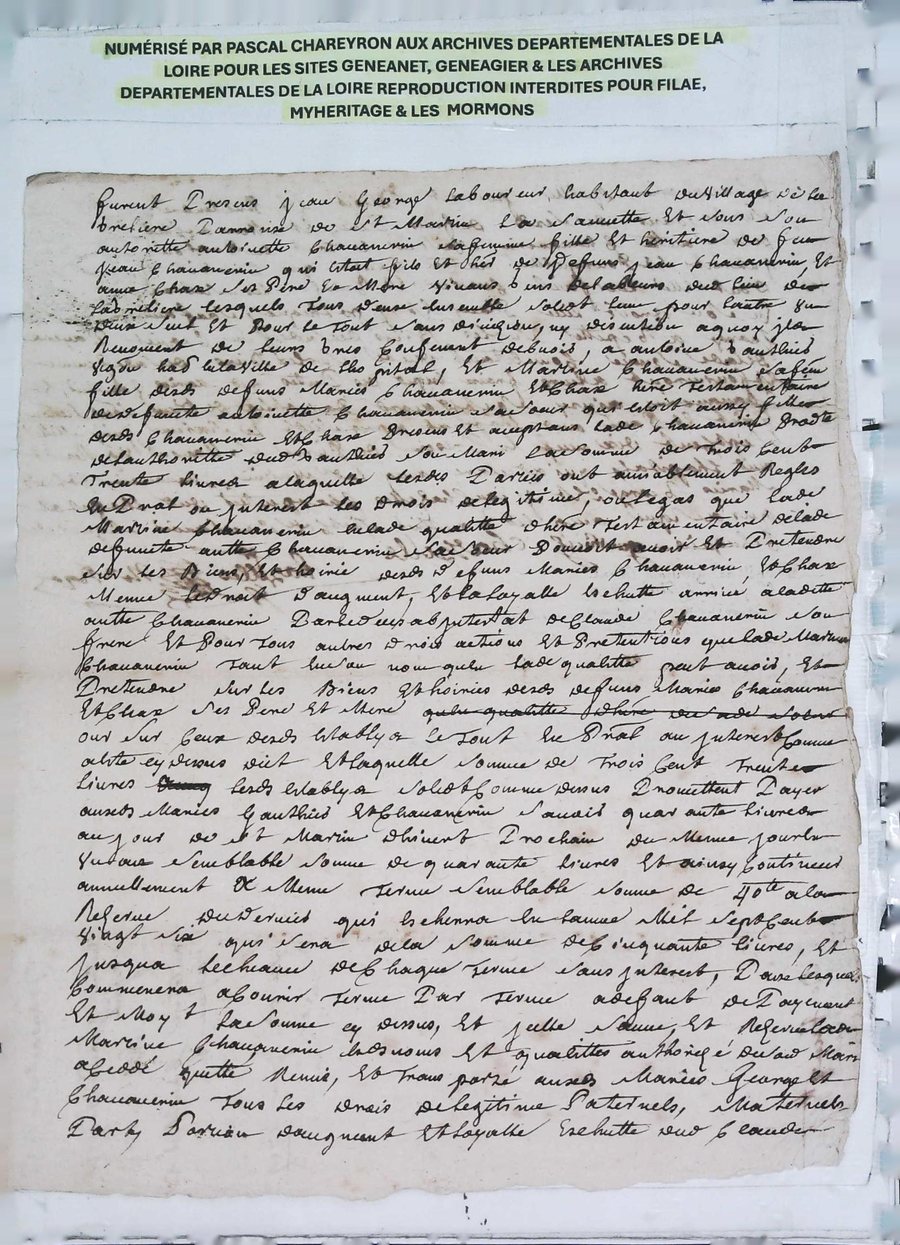 NUMÉRISÉ PAR PASCAL CHAREYRON AUX ARCHIVES DEPARTEMENTALES DE LA
LOIRE POUR LES SITES GENEANET, GENEAGIER & LES ARCHIVES
DEPARTEMENTALES DE LA LOIRE REPRODUCTION INTERDITES POUR FILAE,
MYHERITAGE & LES MORMONS
furent Presens jean George Laboureur habitant du village de la
bretiere Parroisse de St Martin La Sauvette Et sous son
autoritte antoinette Chavanerin sa femme fille Et heritiere de feu
jean Chavanerin qui estoit fils et her de defunt jean Chavanerin, Et
anne Chax ses Pere Et Mere vivans du lieu de
la bretiere lesquels tous deux Ensemble solidt lun pour lautre un
deux seul Et Pour le tout sans division, ny discution a quoy jls
Renoncent de leurs Confessent debvoir, a antoine Gauthier
vigon hab de la Ville de Lhopital, Et Martine Chavanerin sa fem
fille desds defunts Mariés Chavanerin Et Chax here testamentaire
de defuncte antoinette Chavanerin sa soeur qui estoit aussy fille
desds Chavanerin Et Chax Presens Et aceptans lade Chavanerin
de lauthoritte dud Gauthier son Mari La somme de Trois Cent
Trente livres a laquelle lesds Parties ont amiablement Regles
En Pral ou jnterest les Drois de legitime, ou legas que lade
Martine Chavanerin En lade qualitte dhere testamentaire de lade
defuncte antte Chavanerin sa soeur Pouvoit avoir Et Pretendre
sur les Biens, Et hoirie desds Defuns Mariés Chavanerin, Et Chax
Mesme le droit daugment, Et la loyalle Eschutte arrivée a ladette
antte Chavanerin Par le deces abjntestat de Claude Chavanerin son
frere Et Pour tous autres Drois actions Et Pretentions que lade Martine
Chavanerin tant En son nom quen lade qualitte peut avoir, Et
Pretendre sur les Biens Et hoiries desds defuns Mariés Chavanerin
Et Chax ses Pere Et Mere quen qualitte dhere de lade soeur
ou sur Ceux desds Establys le tout En Pral ou jnterest Comme
a esté cy dessus dict Et laquelle somme de Trois Cent Trente
livres lesds Establys solidt Comme dessus Promettent Payer
ausds Mariés Gauthier Et Chavanerin savoir quarante livres
au jour de St Martin dhivert Prochain du Mesme jour En
un an semblable somme de quarante livres Et ainsy Continuer
annuellement a Mesme Terme semblable somme de 40te a la
Reserve du dernier qui Eschera En lannée Mil Sept Cent
Vingt Six qui sera de la somme de Cinquante livres, Et
jusqua lecheance de Chaque Terme sans jnterest,
Commencera a Courir Terme Par Terme a defaut de Payement
Et Moyt La somme cy dessus, Et jcelle sauve, Et Reservée lade
Martine Chavanerin Esds noms Et qualittes authorizé dud Mari
a Ceddé quitté Remis, Et Transporté ausds Mariés George Et
Chavanerin tous les drois de legitime Paternels, Maternels
Part, Portion daugment Et loyalle Eschutte dud Claude